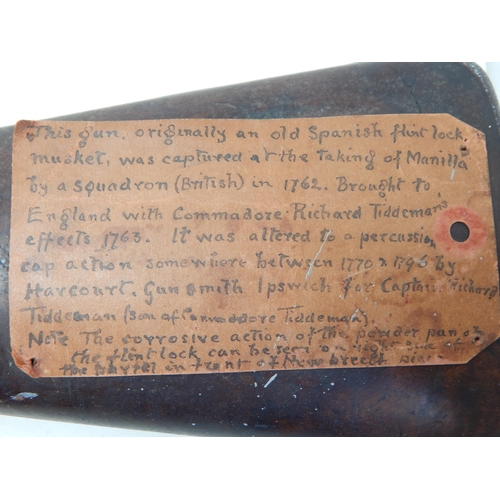 This gun, originally an old Spanish flint lock,
musket, was captured at the taking of Manilla
by a squadron (British) in 1762. Brought to
England with Commadore Richard Tiddemans
effects 1763. It was altered to a percussion
cap action somewhere between 1770 & 1796 by
Harcourt, Gunsmith Ipswich for Captain Richard
Tiddeman (son of Commodore Tiddeman).
Note The corrosive action of the powder pan of
the flint lock can be seen on right side of
the barrel in front of New breech